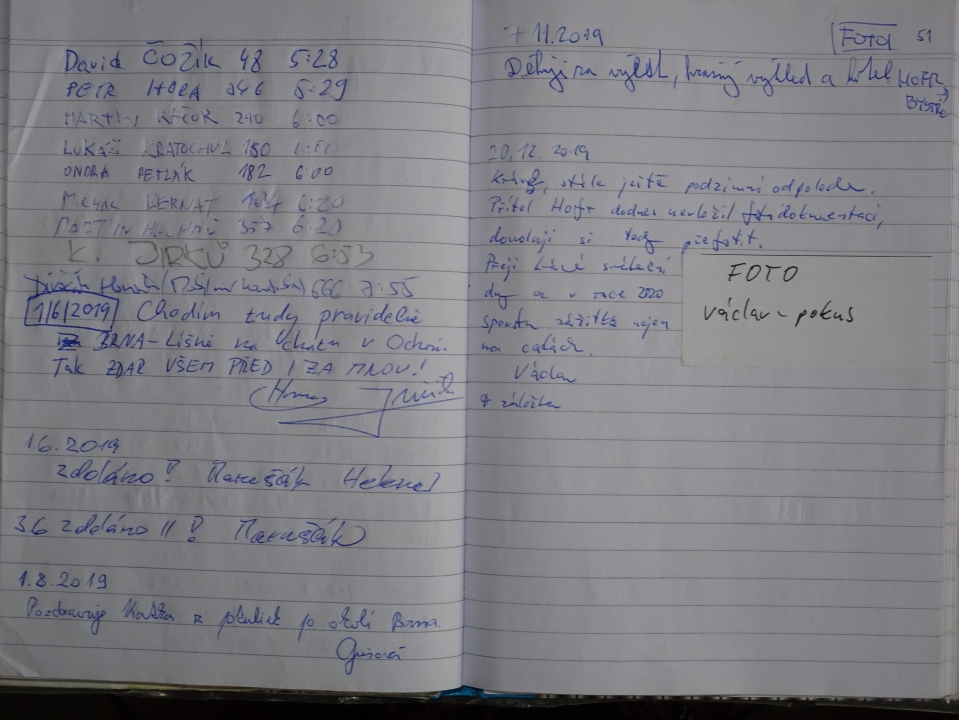 David ČOŽÍK 48 5:28
PETR HORA 346 5:29
MARTIN 240 6:00
LUKÁŠ KRATOCHVÍL 180 6:00
ONDRA PETLÁK 182 6:00
BERNÁT 184 6:20
MARTIN 357 6:20
K. JIRKŮ 328 6:53
666 7:55
1/6/2019 Chodím tudy pravidelně
BRNA-Líšně na chatu v Ochozi.
Tak ZDAR VŠEM PŘED I ZA MNOU!
1 6. 2019
zdoláno! Maruščák Helena
3 6 zdoláno II! Maruščák
1.8.2019
Pozdravuje Katka z potulek po okolí Brna.
7 11.2019
FOTO 51
Děkuji za výlet, krásný výhled a kotel HOFR
BYSTŘC
20. 12. 2019
Krásné, stále ještě podzimní odpoledne.
Přítel Hofr dodnes nevložil fotodokumentaci,
dovoluji si tedy přefotit.
Přeji krásné sváteční
dny a v roce 2020
spoustu zážitků nejen
na cestách.
Václav
+ záložka
FOTO
václav - pokus